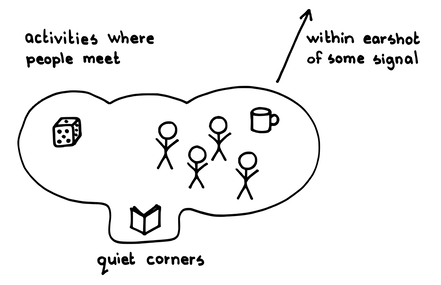 activities where
people meet
within earshot
of some signal
quiet corners